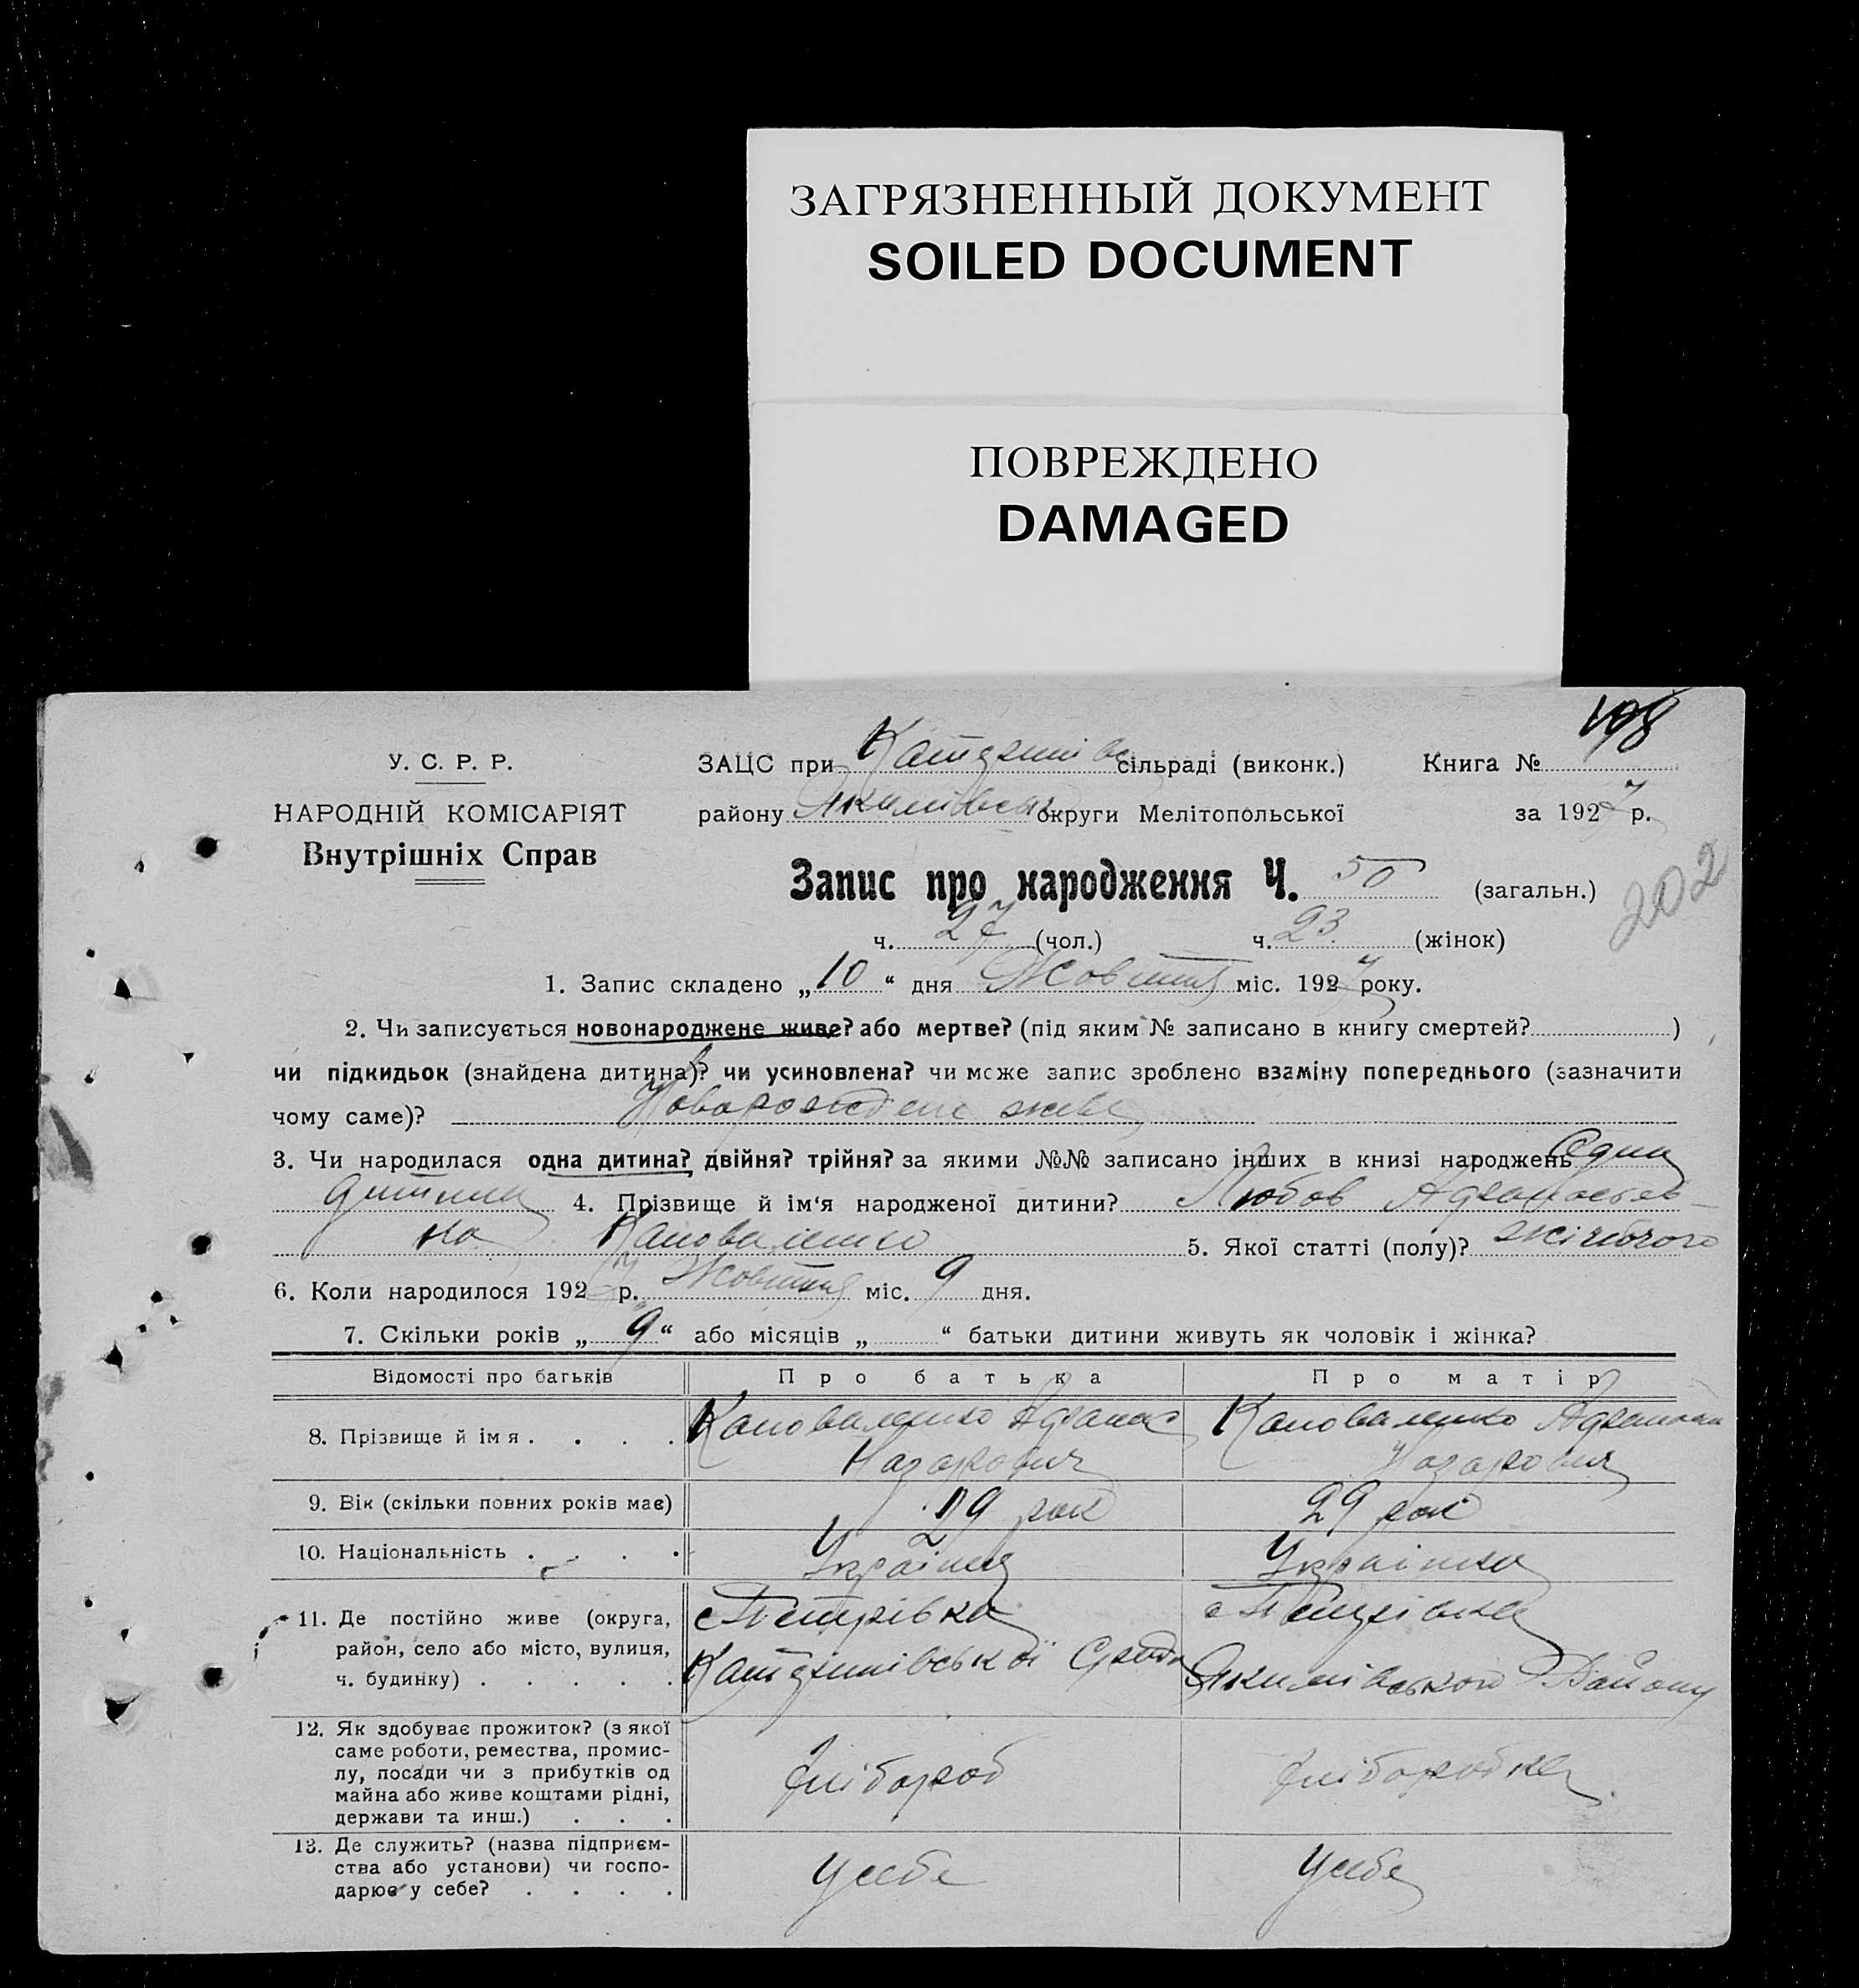 ЗАГРЯЗНЕННЫЙ ДОКУМЕНТ
SOILED DOCUMENT
ПОВРЕЖДЕНО
DAMAGED
198
У. С. Р. Р.
ЗАЦС при сільраді (виконк.) Книга №
НАРОДНІЙ КОМІСАРІЯТ
району Якимівськ округи Мелітопольської за 1927 р.
Внутрішніх Справ
Запис про народження Ч. 50 (загальн.)
202
ч. 27 (чол.) ч. 23 (жінок)
1. Запис складено „10“ дня Жовтня міс. 1927 року.
2. Чи записується новонароджене живе? або мертве? (під яким № записано в книгу смертей? )
чи підкидьок (знайдена дитина)? чи усиновлена? чи може запис зроблено взаміну попереднього (зазначити
чому саме)? Новарождене живе
3. Чи народилася одна дитина? двійня? трійня? за якими №№ записано інших в книзі народжень Одна
дитина 4. Прізвище й ім‘я народженої дитини? Любов
на Кановаленко 5. Якої статті (полу)? жіночого
6. Коли народилося 1927 р. Жовтня міс. 9 дня.
7. Скільки років „9“ або місяців „ “ батьки дитини живуть як чоловік і жінка?
Відомості про батьків Про батька Про матір
8. Прізвище й імя . . . . Кановаленко Афанас Кановаленко
Назарович Назарович
9. Вік (скільки повних років має) 29 рок 29 рок
10. Національність . . . . Українец Українка
11. Де постійно живе (округа, с Петрівка с Петрівка
район, село або місто, вулиця,
ч. будинку) . . . . . Якимівського Району
12. Як здобуває прожиток? (з якої
саме роботи, ремества, промис-
лу, посади чи з прибутків од хлібороб хліборобка
майна або живе коштами рідні,
держави та инш.) . . .
13. Де служить? (назва підприєм-
ства або установи) чи госпо- У себе У себе
дарює у себе? . . . .